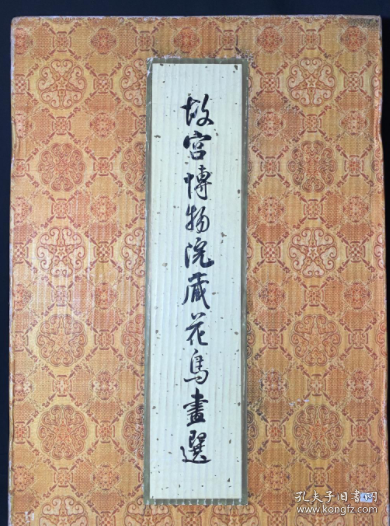 故宫博物院藏花鸟畫選
孔夫子旧书网
www.kongfz.com